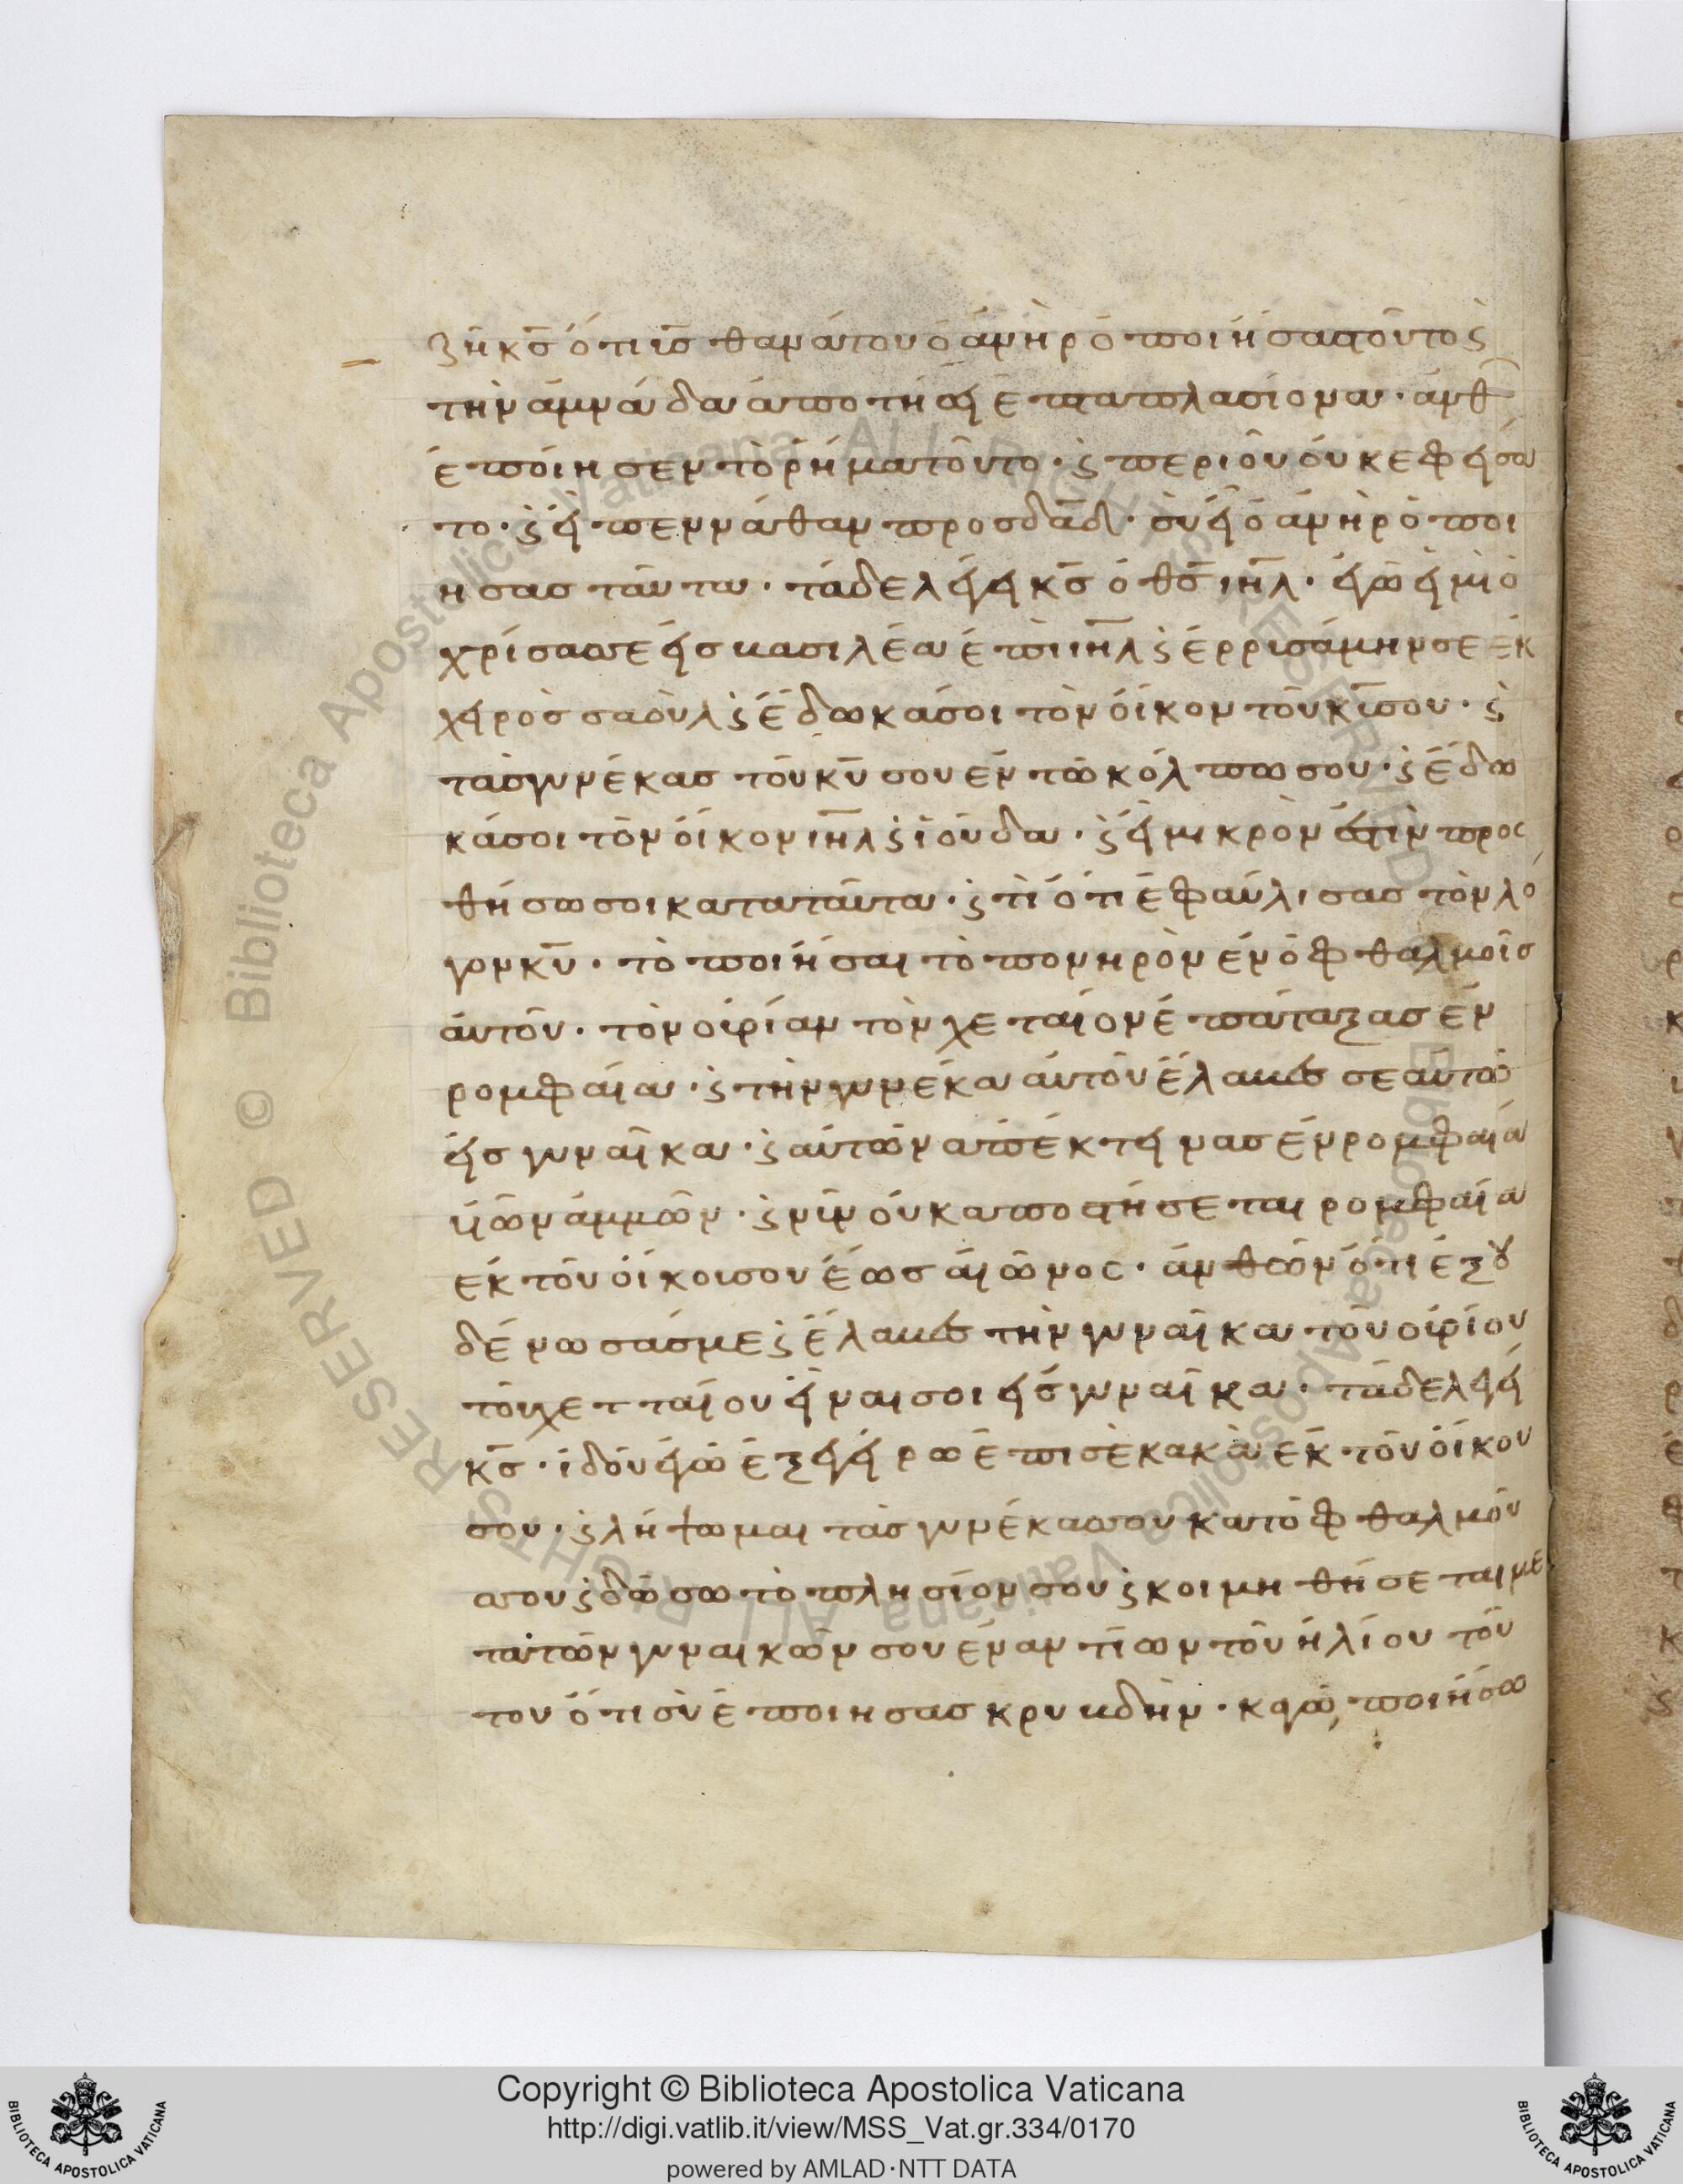 ζῆ κ̅ς̅ ὅτι υἱ̅ς̅ θανάτου ὁ ἀνὴρ ὁ ποιήσας τοῦτο ϛ
τὴν ἀμνάδα ἀποτήσει ἑπταπλασίονα · ἀνθ
ἐποίησεν τὸ ῥῆμα τοῦτο · ϛ περι οὗ οὐκ εφείσα
το · ϛ εἶπεν νάθαν προσ δα̅δ̅ · σὺ εἶ ὁ ἀνὴρ ὁ ποι
ησασ ταῦτα · τάδε λέγει κ̅ς̅ ὁ θ̅ς̅ ι̅η̅λ̅ · ἐγώ εἰμι ὁ
χρίσασ σε εἰσ βασιλέα ἐπὶ ι̅η̅λ̅ ϛ ἐρρισάμην σε ἐκ
χειρὸσ σαοὺλ ϛ ἔδωκά σοι τὸν οἶκον τοῦ κ̅υ̅ σου · ϛ
τὰσ γυνέκασ τοῦ κ̅υ̅ σου εν τῶ κόλπω σου · ϛ ἔδω
κά σοι τὸν οἶκον ι̅η̅λ̅ ϛ ἰούδα · ϛ εἰ μικρὸν ἐστὶν προσ
θήσω σοι κατα ταῦτα · ϛ τί ὅτι ἐφαύλισασ τὸν λό
γον κ̅υ̅ · τὸ ποιῆσαι τὸ πονηρὸν ἐν ὀφθαλμοῖσ
αὐτοῦ · τὸν οὐρίαν τὸν χεταῖον ἐπάταξασ ἐν
ρομφαία · ϛ τὴν γυνέκα αὐτοῦ ἔλαβεσ σεαυτῶ
εἰσ γυναῖκα · ϛ αὐτὸν ἀπέκτεινασ ἐν ρομφαία
υἱῶν ἀμμῶν · ϛ νῦν οὐκ αποστήσεται ρομφαία
εκ τοῦ οἴκοι σου ἕωσ αἰῶνοσ · ἀνθ ὧν ὅτι ἐξου
δένωσάσ με ϛ ἔλαβεσ τὴν γυναῖκα τοῦ οὐρίου
τοῦ χετταίου εἶναι σοι εἰσ γυναῖκα · τάδε λέγει
κ̅ς̅ · ἰδοὺ ἐγὼ ἐξεγείρω ἐπι σὲ κακὰ ἐκ τοῦ οἴκου
σου · ϛ λήψωμαι τὰσ γυνέκασ σου κατ ὀφθαλμού
σου ϛ δώσω τὸ πλησίον σου ϛ κοιμηθήσεται με
τα τῶν γυναικῶν σου ἐναντίων τοῦ ἡλίου τού
του ὅτι σὺ ἐποιησασ κρυβδὴν · κἀγώ ποιήσω
Copyright © Biblioteca Apostolica Vaticana
http://digi.vatlib.it/view/MSS_Vat.gr.334/0170
powered by AMLAD·NTT DATA